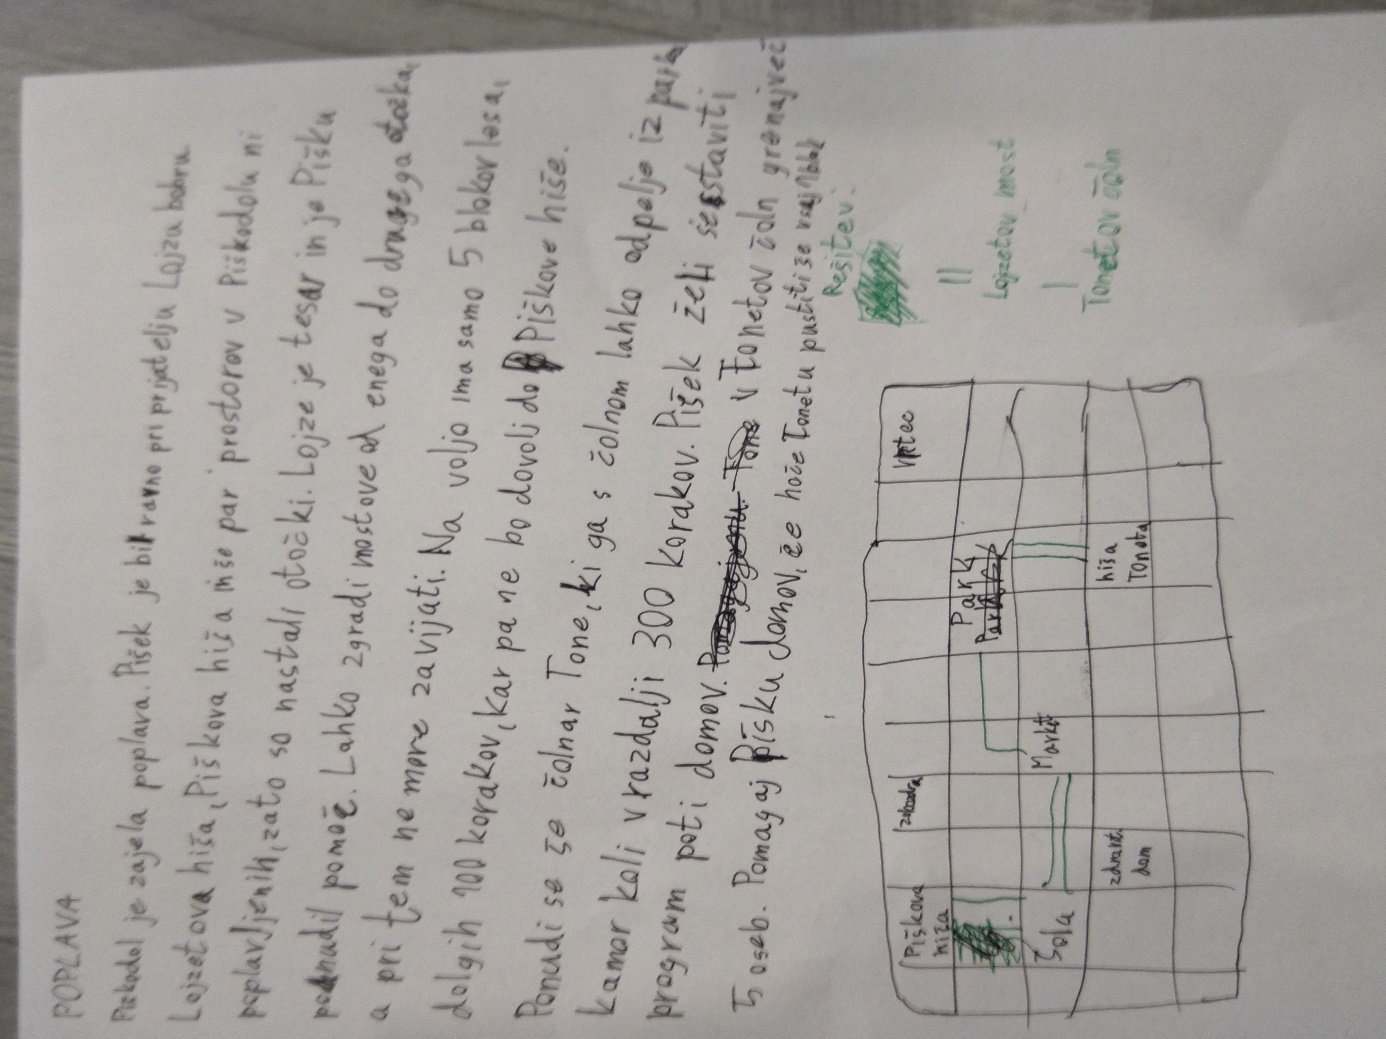 POPLAVA
Piškodol je zajela poplava. Pišek je bil ravno pri prijatelju Lojzu bobru.
Lojzetova hiša, Piškova hiša in še par prostorov v Piškodolu ni
poplavljenih, zato so nastali otočki. Lojze je tesar in je Pišku
ponudil pomoč. Lahko zgradi mostove od enega do drugega otočka,
a pri tem ne more zavijati. Na voljo ima samo 5 blokov lesa,
dolgih 100 korakov, kar pa ne bo dovolj do Piškove hiše.
Ponudi se še čolnar Tone, ki ga s čolnom lahko odpelje iz parka
kamor koli v razdalji 300 korakov. Pišek želi sestaviti
program poti domov. V Tonetov čoln gre največ
5 oseb. Pomagaj Pišku domov, če hoče Tonetu pustiti še vsaj 1 blok
Rešitev:
||
Lojzetov most
|
Tonetov čoln
Vrtec
Park
hiša
Toneta
Market
zdravst.
dom
Piškova
hiša
Šola